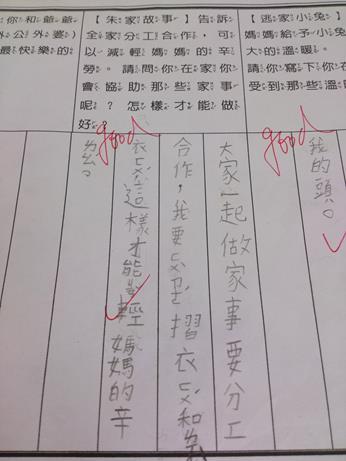 【逃家小兔
媽媽給予小兔
大的溫暖。
請你寫下你在
受到那些溫
good
我的頭。
【朱家故事】告訴
全家分工合作，可
以減輕媽媽的辛
勞。請問你在家你
會協助那些家事
呢？怎樣才能做
好？
good
大家一起做家事要分工
合作，我要摺衣ㄈㄨˊ和
衣ㄈㄨˊ這樣才能輕媽媽的辛
ㄌㄠˊ。
你和爺爺
外公外婆）
最快樂的